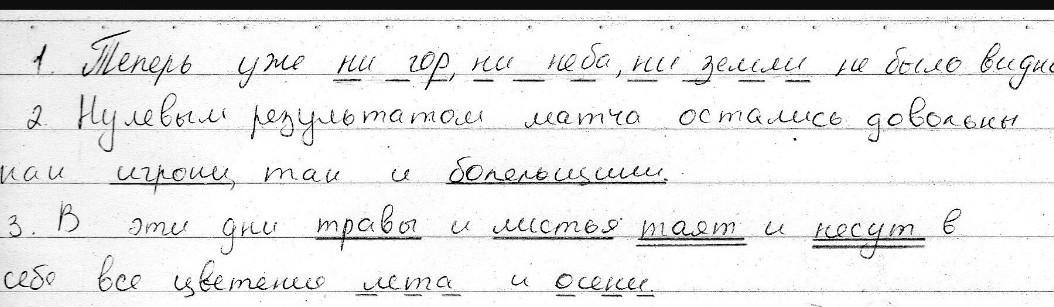 1. Теперь уже ни гор, ни неба, ни земли не было видно
2. Нулевым результатом матча остались довольны
как игроки, так и болельщики.
3. В эти дни травы и листья таят и несут в
себе все цветение лета и осени.